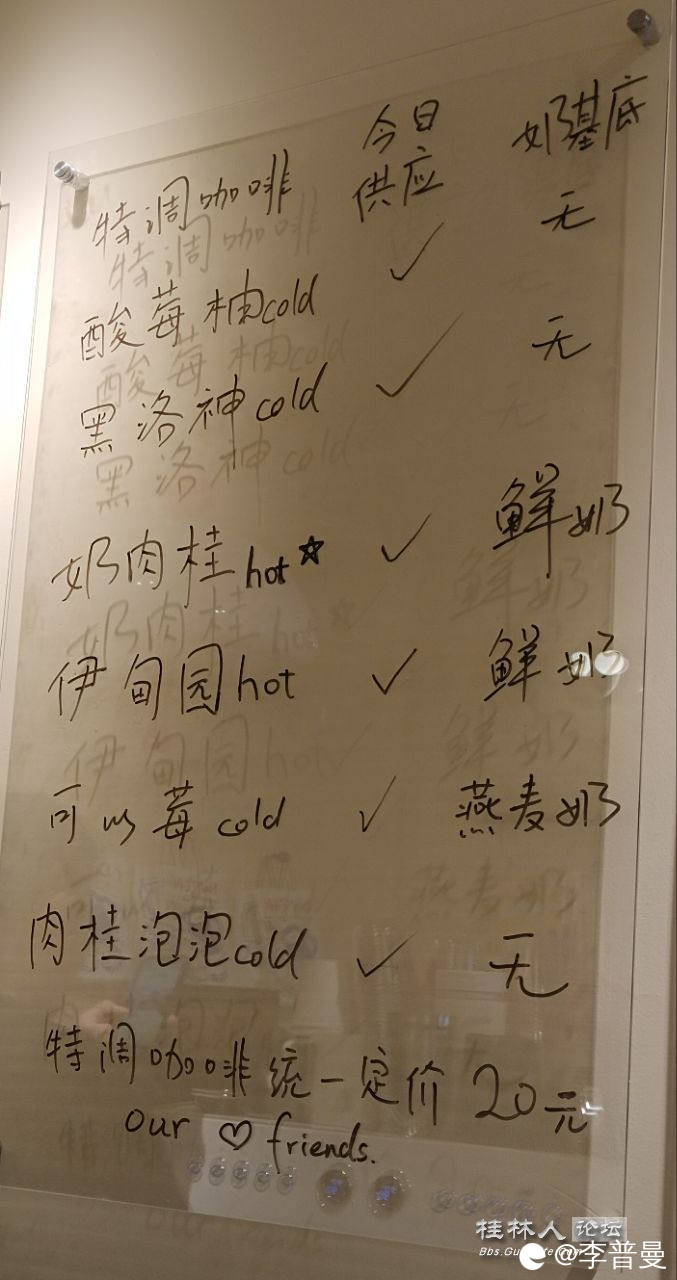 特调咖啡 今日供应 奶基底
酸莓柚cold ✓ 无
黑洛神cold ✓ 无
奶肉桂hot☆ ✓ 鲜奶
伊甸园hot ✓ 鲜奶
可以莓cold ✓ 燕麦奶
肉桂泡泡cold ✓ 无
特调咖啡统一定价20元
our ♡ friends.
桂林人论坛
@李普曼